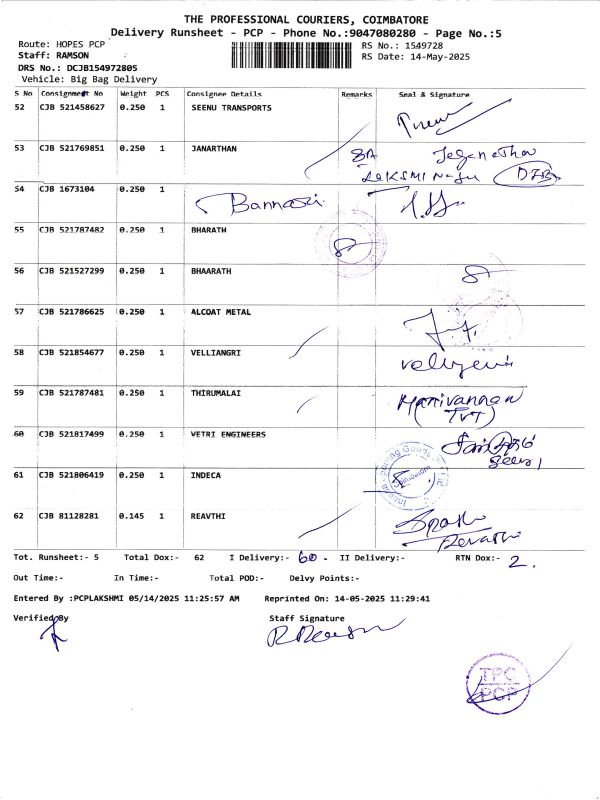 THE PROFESSIONAL COURIERS, COIMBATORE
Delivery Runsheet - PCP - Phone No.:9047080280 - Page No.:5
Route: HOPES PCP RS No.: 1549728
Staff: RAMSON RS Date: 14-May-2025
DRS No.: DCJB154972805
Vehicle: Big Bag Delivery
S No Consignment No Weight PCS Consignee Details Remarks Seal & Signature
52 CJB 521458627 0.250 1 SEENU TRANSPORTS
53 CJB 521769851 0.250 1 JANARTHAN
54 CJB 1673104 0.250 1 Bannari
55 CJB 521787482 0.250 1 BHARATH
56 CJB 521527299 0.250 1 BHAARATH
57 CJB 521786625 0.250 1 ALCOAT METAL
58 CJB 521854677 0.250 1 VELLIANGRI
59 CJB 521787481 0.250 1 THIRUMALAI Manivannan
(TVT)
60 CJB 521817499 0.250 1 VETRI ENGINEERS
61 CJB 521806419 0.250 1 INDECA
62 CJB 81128281 0.145 1 REAVTHI
Revathi
Tot. Runsheet:- 5 Total Dox:- 62 I Delivery:- 60. II Delivery:- RTN Dox:- 2.
Out Time:- In Time:- Total POD:- Delvy Points:-
Entered By :PCPLAKSHMI 05/14/2025 11:25:57 AM Reprinted On: 14-05-2025 11:29:41
Verified By Staff Signature
TPC
PCP